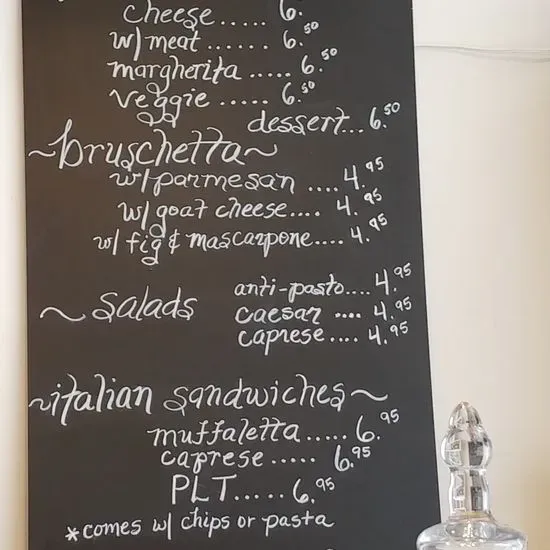 cheese..... 6.
w/ meat...... 6.50
margherita ..... 6.50
veggie ..... 6.50
dessert... 6.50
~bruschetta~
w/ parmesan .... 4.95
w/ goat cheese.... 4.95
w/ fig & mascarpone.... 4.95
~ salads
anti-pasto.... 4.95
caesar .... 4.95
caprese.... 4.95
~italian sandwiches~
muffaletta..... 6.95
caprese ..... 6.95
PLT..... 6.95
*comes w/ chips or pasta